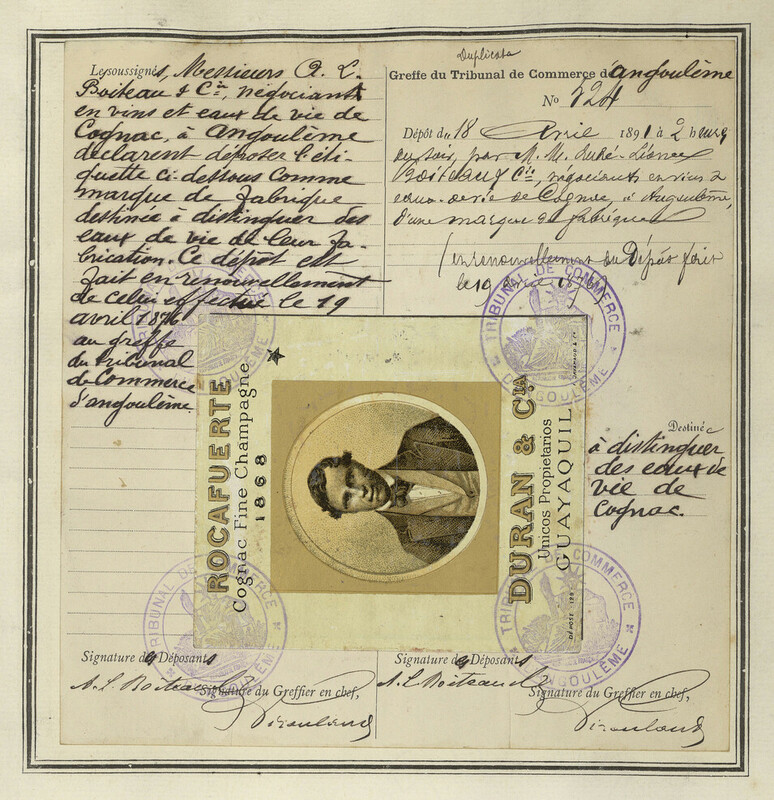 Les soussignés, Messieurs A. L.
Boiteau & Cie, négociants
en vins et eaux de vie de
Cognac, à Angoulême
déclarent déposer l'éti-
quette ci-dessous comme
marque de fabrique
destinée à distinguer des
eaux de vie de leur fa-
brication. Ce dépôt est
fait en renouvellement
de celui effectué le 19
avril 1876
au greffe
du tribunal
de Commerce
d'angoulême
Duplicata
Greffe du Tribunal de Commerce d'angoulême
No 724
Dépôt du 18 Avril 1891 à 2 heures
du soir, par M. M.
Boiteau & Cie, négociants en vins &
eaux-de-vie de Cognac, à Angoulême,
d'une marque de fabrique
(en renouvellement du Dépôt fait
le 19 avril
Destinée
à distinguer
des eaux de
vie de
Cognac.
ROCAFUERTE
Cognac Fine Champagne
1868
DURAN & CIA
Unicos Propietarios
GUAYAQUIL
DÉPOSÉ
TRIBUNAL DE COMMERCE
D'ANGOULÊME
TRIBUNAL DE COMMERCE
D'ANGOULÊME
TRIBUNAL DE COMMERCE
D'ANGOULÊME
TRIBUNAL DE COMMERCE
D'ANGOULÊME
Signature des Déposants
A. L. Boiteau
Signature du Greffier en chef,
Signature des Déposants
A. L. Boiteau
Signature du Greffier en chef,